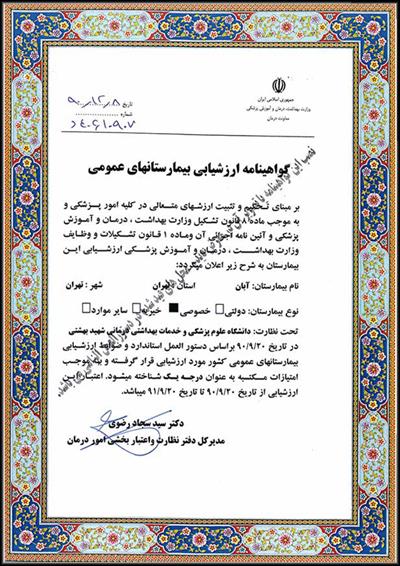 جمهوری اسلامی ایران
وزارت بهداشت، درمان و آموزش پزشکی
معاونت درمان
تاریخ ۹۰،۱۲،۰۸
شماره ۲۴۰۶۱۰۹۰۷
گواهینامه ارزشیابی بیمارستانهای عمومی
بر مبنای تحکیم و تثبیت ارزشهای متعالی در کلیه امور پزشکی و
به موجب ماده ۸ قانون تشکیل وزارت بهداشت ، درمان و آموزش
پزشکی و آئین نامه اجرائی آن وماده ۱ قانون تشکیلات و وظایف
وزارت بهداشت ، درمان و آموزش پزشکی ارزشیابی این
بیمارستان به شرح زیر اعلان میگردد:
نام بیمارستان: آبان استان: تهران شهر : تهران
نوع بیمارستان: دولتی□ خصوصی■ خیریه□ سایر موارد□
تحت نظارت: دانشگاه علوم پزشکی و خدمات بهداشتی درمانی شهید بهشتی
در تاریخ ۹۰/۹/۲۰ براساس دستور العمل استاندارد و ضوابط ارزشیابی
بیمارستانهای عمومی کشور مورد ارزشیابی قرار گرفته و به موجب
امتیازات مکتسبه به عنوان درجه یک شناخته میشود. اعتبار این
ارزشیابی از تاریخ ۹۰/۹/۲۰ تا تاریخ ۹۱/۹/۲۰ میباشد.
دکتر سید سجاد رضوی
مدیرکل دفتر نظارت واعتبار بخشی امور درمان
نصب این گواهینامه